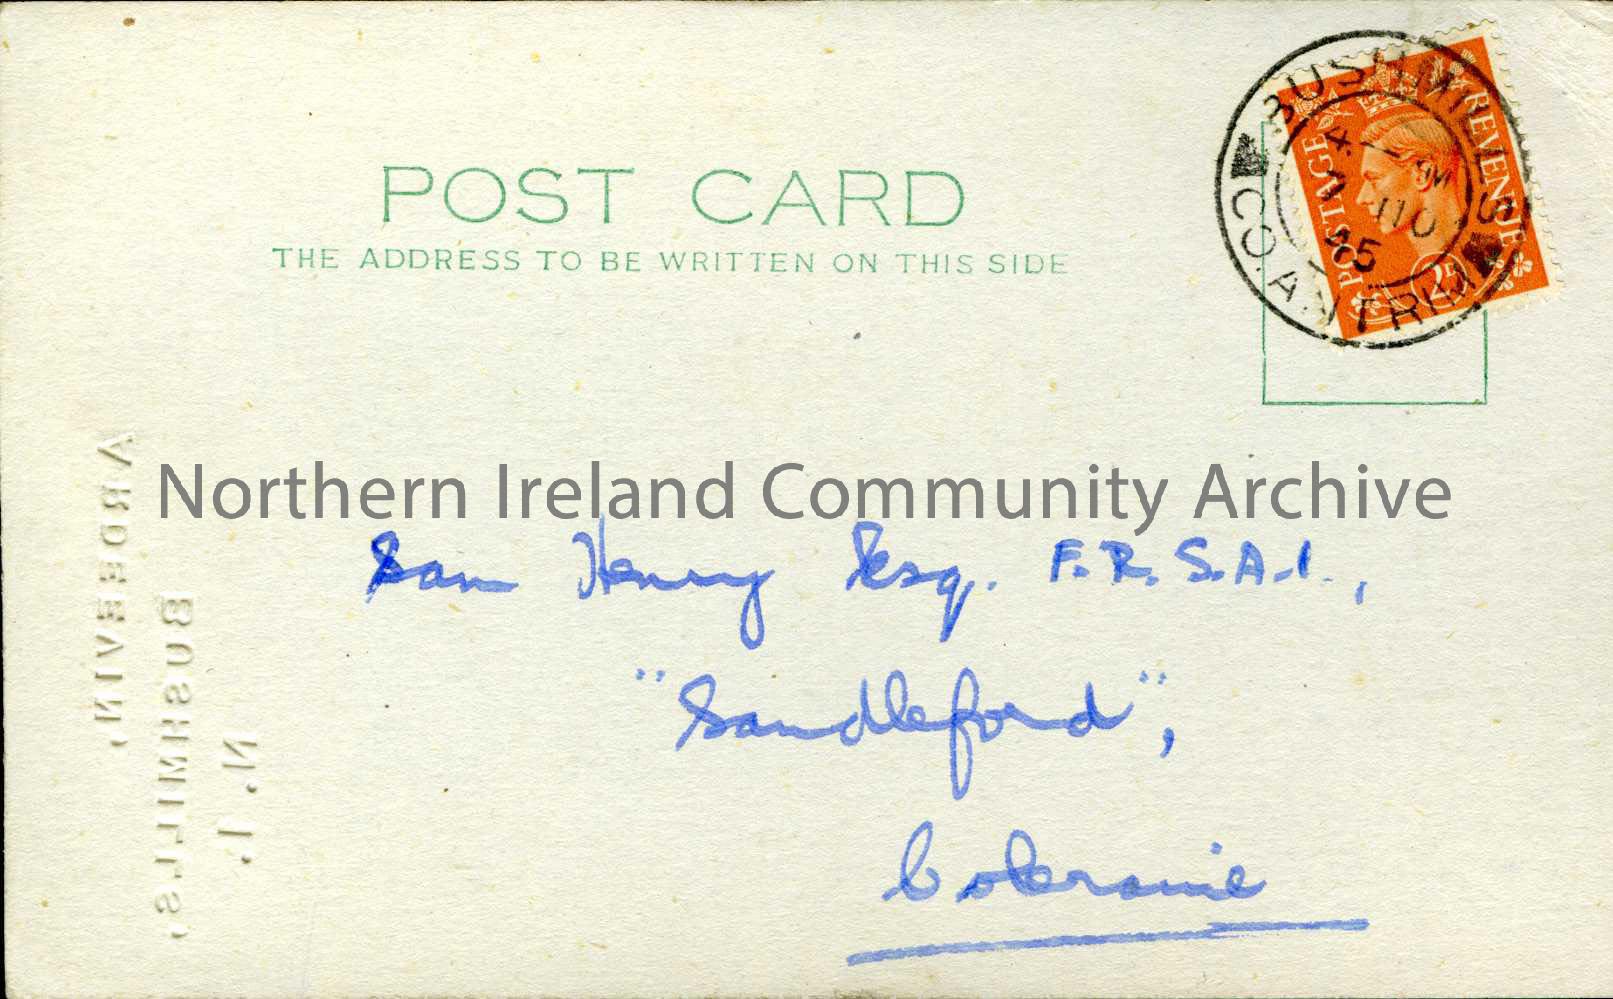 POST CARD
THE ADDRESS TO BE WRITTEN ON THIS SIDE
BUSHMILLS
CO. ANTRIM
POSTAGE
REVENUE
2D
Northern Ireland Community Archive
Sam Henry Esq. F.R.S.A.I.,
"Sandleford",
Coleraine
ARDEEVIN,
BUSHMILLS,
N. I.